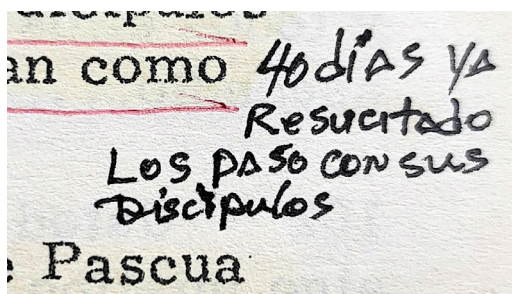 discípulos
an como 40 dias ya
Resucitado
Los paso con sus
Discipulos
e Pascua